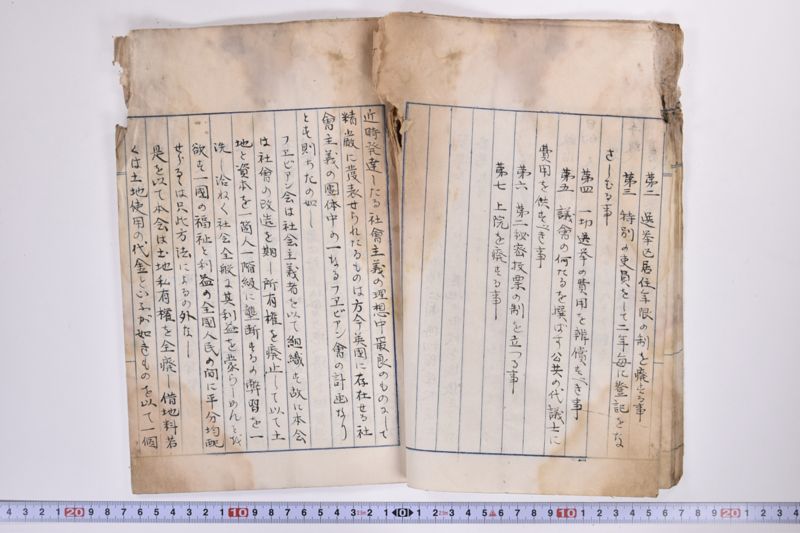 第二 選挙区居住年限の制を廃する事
第三 特別の吏員をして二年毎に登記をな
さしむる事
第四 一切選挙の費用を辨償すべき事
第五 議会の何たるを撰ばず公共の代議士に
費用を供すべき事
第六 第二秘密投票の制を立つる事
第七 上院を廃する事
近時発達したる社會主義の理想中最良のものにして
精厳に發表せられたるものは方今英國に存在せる社
會主義の團体中の一なるフヱビアン會の計画なり
とす則ち左の如し
フヱビアン会は社会主義者を以て組織す故に本会
は社會の改造を期し所有權を廃止して以て土
地と資本を一箇人一階級に壟断するの弊習を一
洗し洽ねく社会全般に其利益を蒙らしめんと
欲す一國の福祉と利益の全國人民の間に平分均配
せらるゝは只此方法によるの外なし
是を以て本会は土地私有權を全廃し借地料若
くは土地使用の代金といふが如きものを以て一個
20 9 8 7 6 5 4 3 2 1 10 9 8 7 6 5 4 3 2 1 0 1 2 3 4 5 6 7 8 9 10 1 2 3 4 5 6 7 8 9 20 1 2 3